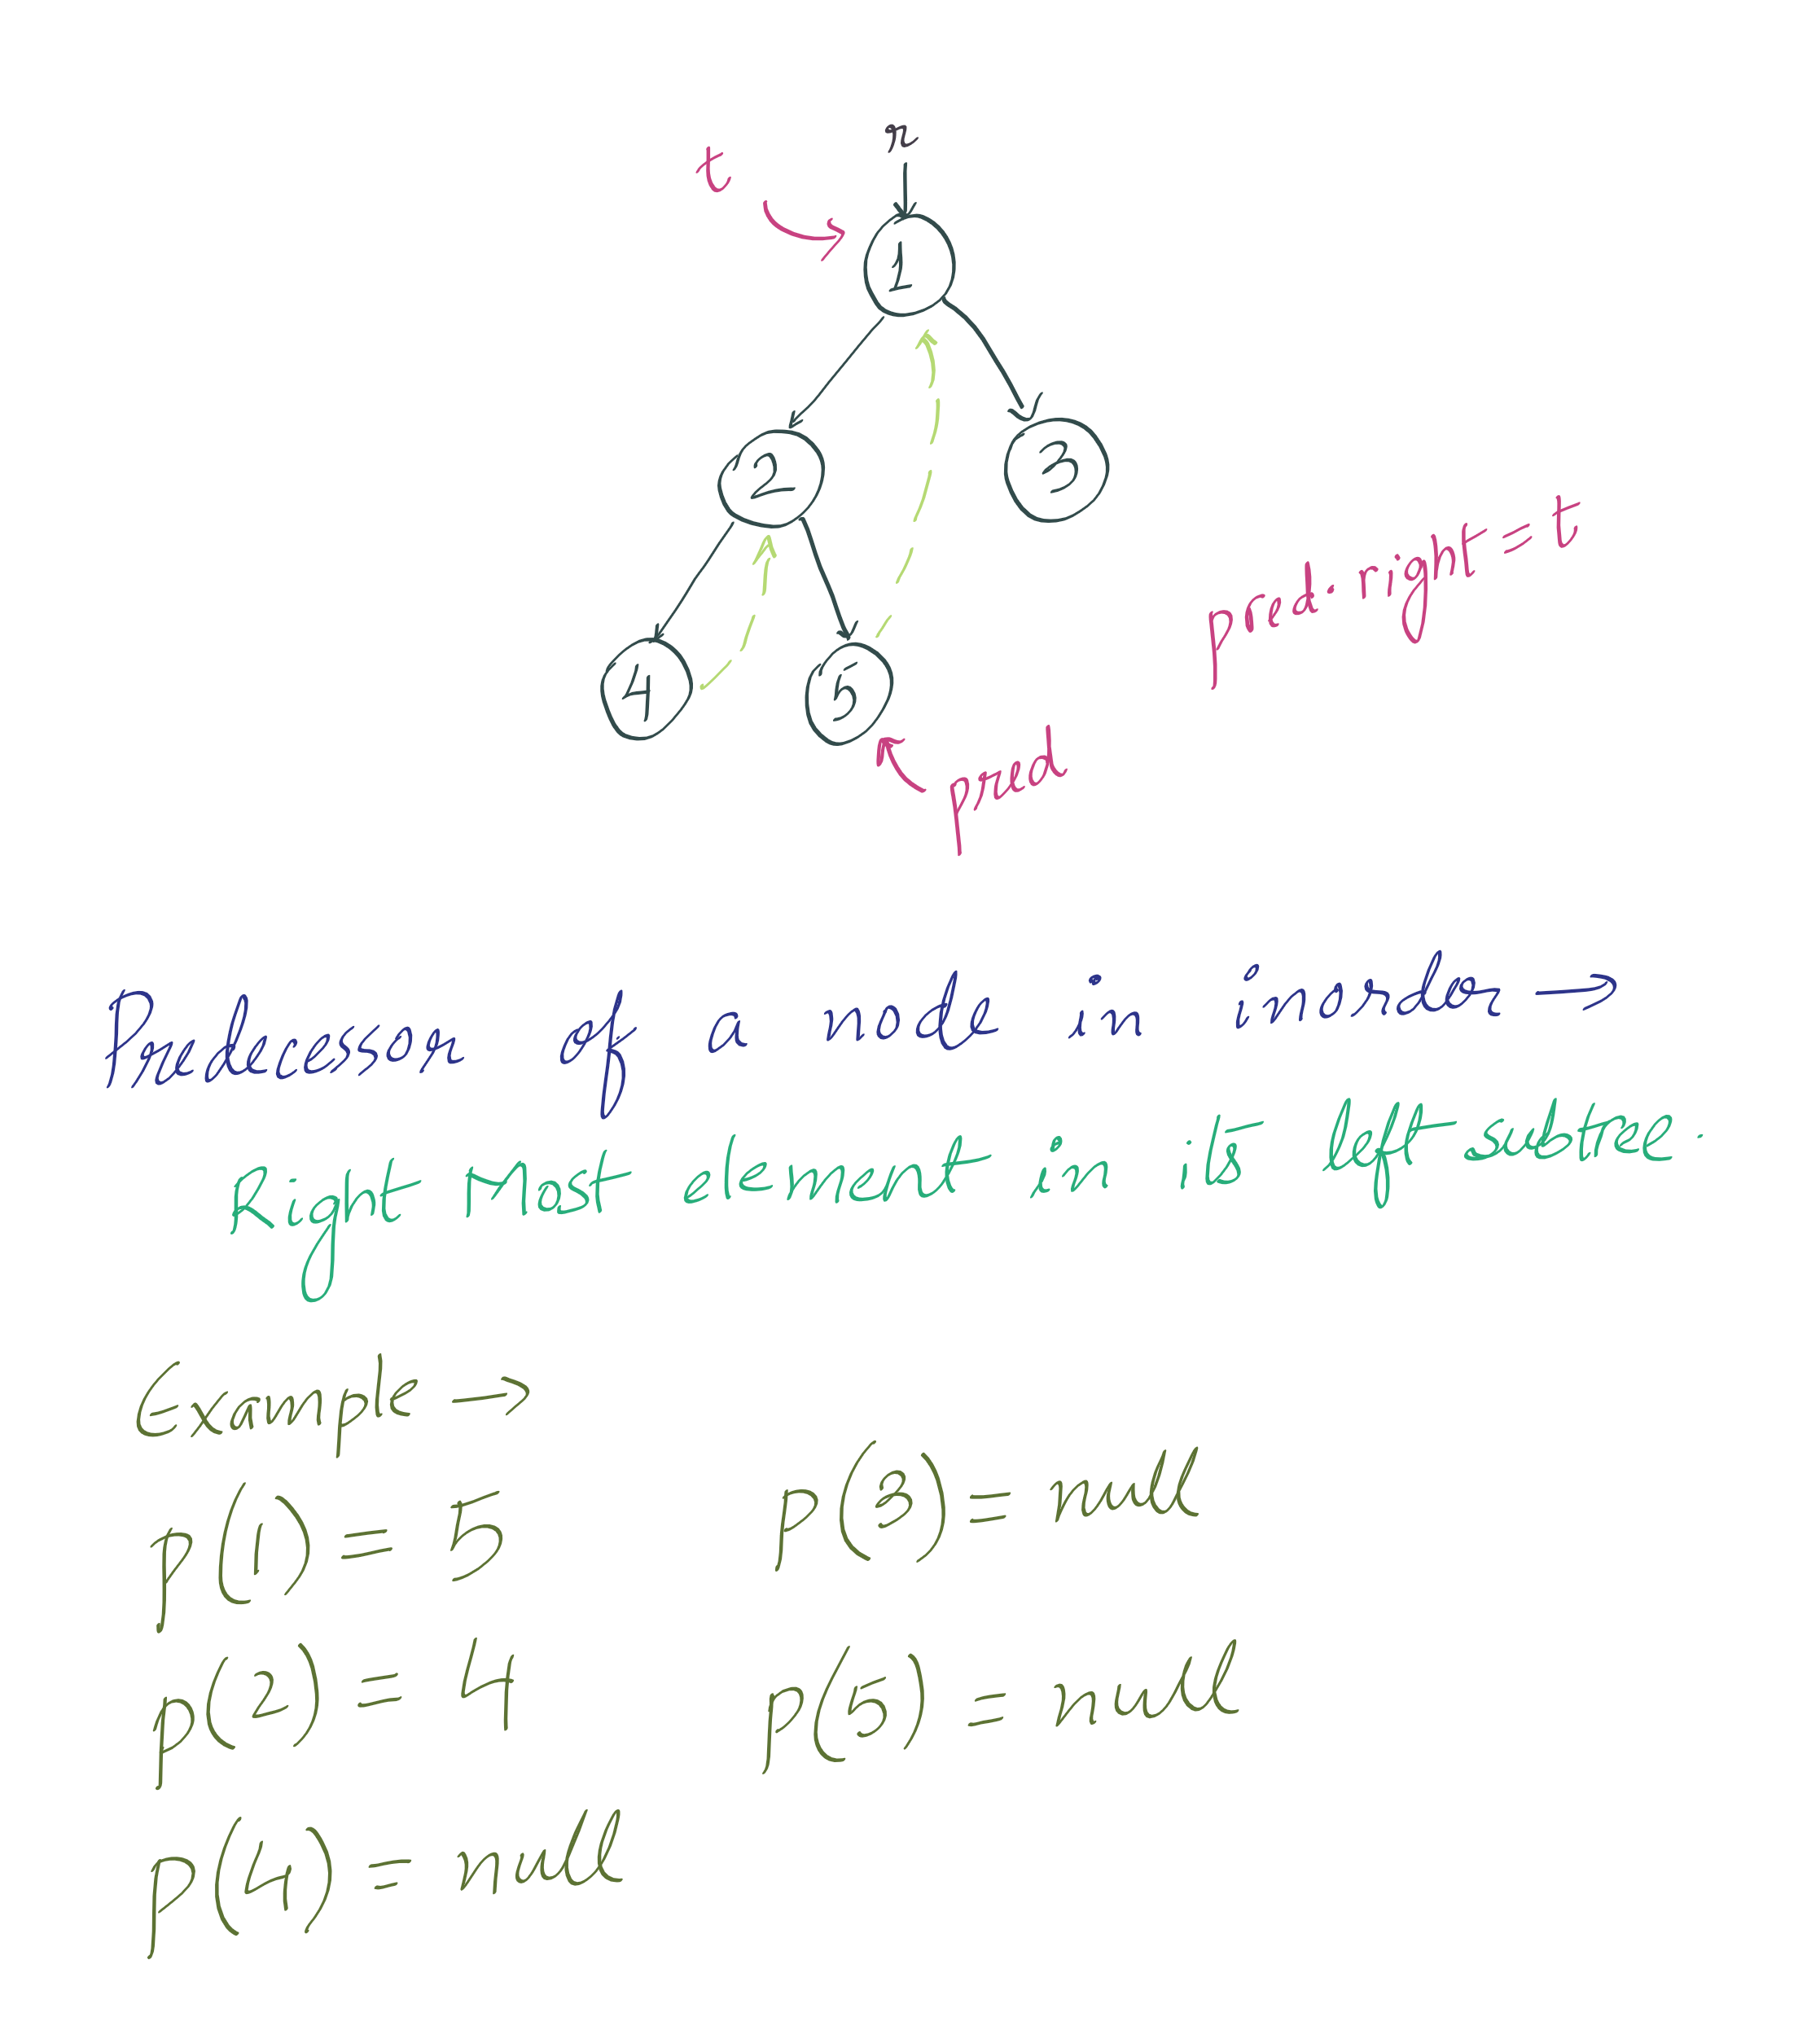 r
t
1
2
3
4
5
pred.right = t
pred
Predecessor of a node in inorder →
Right Most element in its left subtree.
Example →
p(1) = 5
p(3) = null
p(2) = 4
p(5) = null
p(4) = null